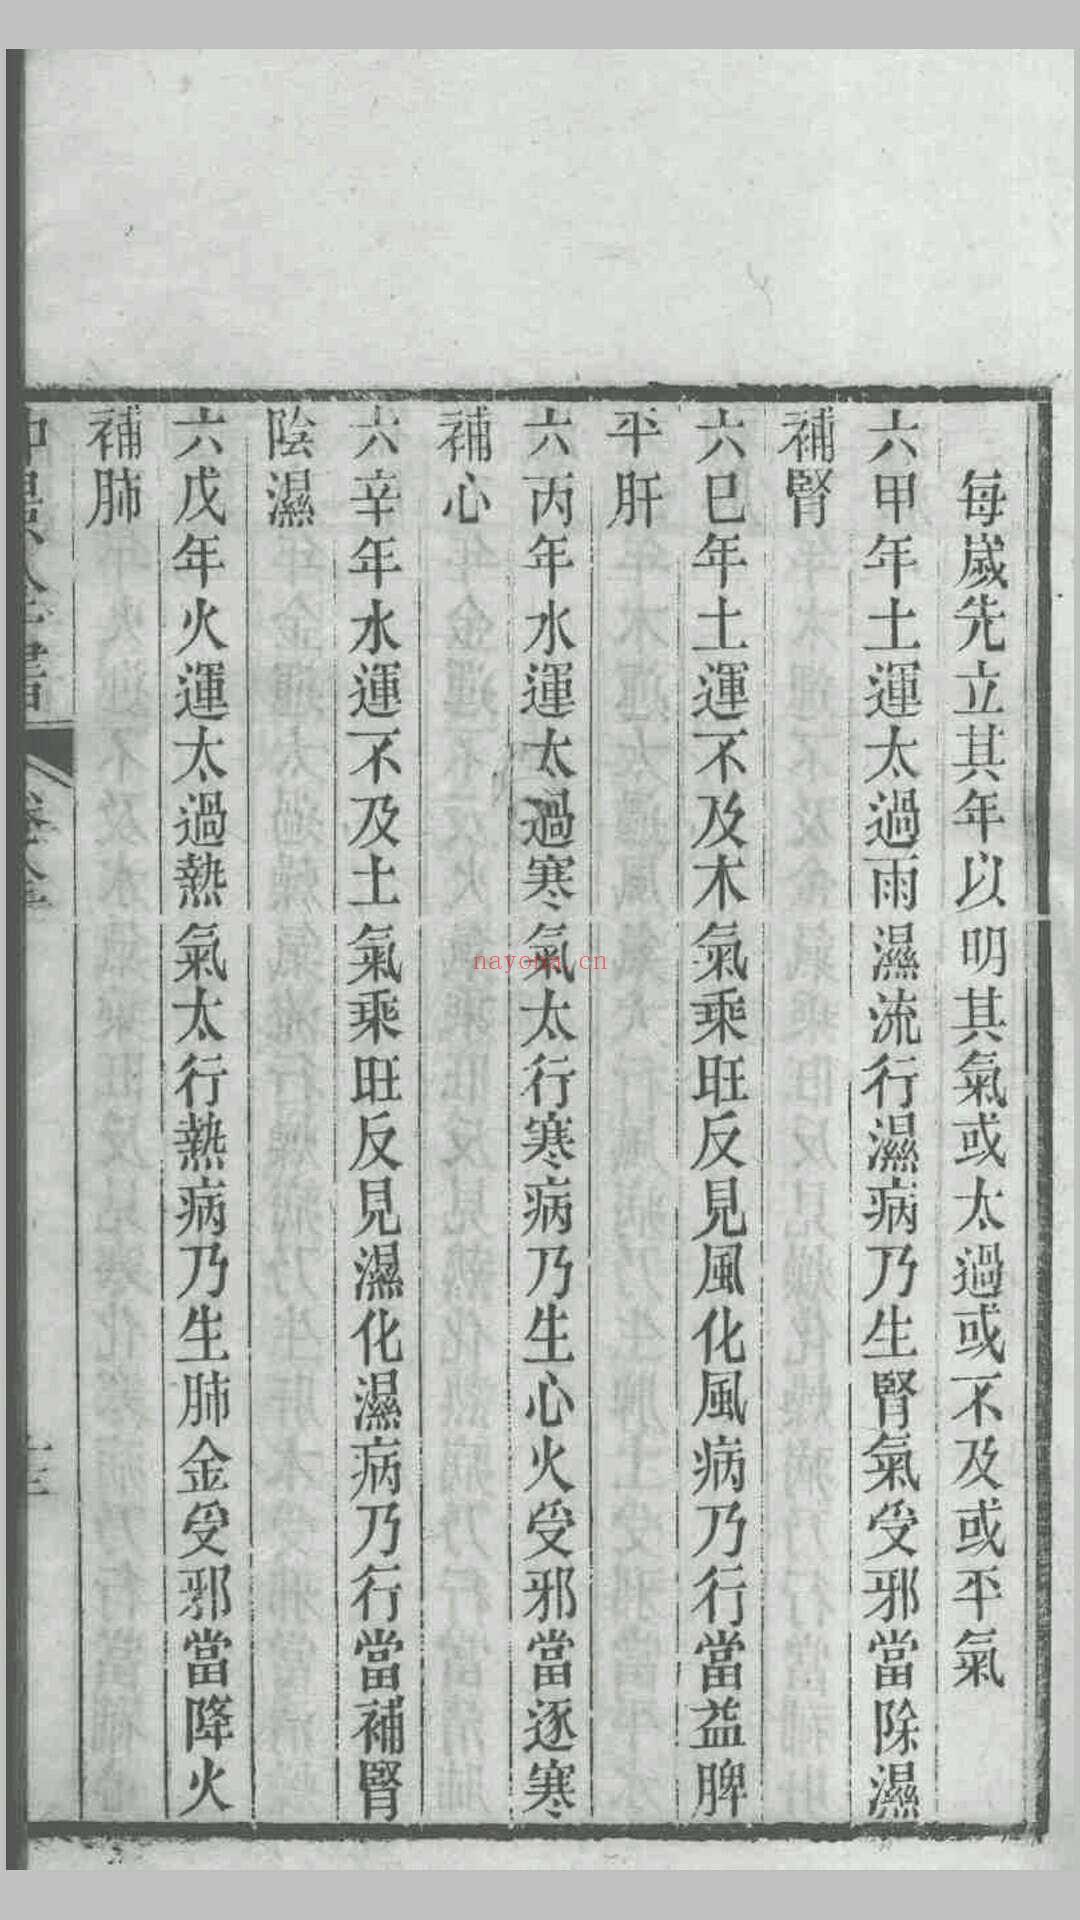 每嵗先立其年以明其氣或太過或不及或平氣
六甲年土運太過雨濕流行濕病乃生腎氣受邪當除濕
補腎
六巳年土運不及木氣乘旺反見風化風病乃行當益脾
平肝
六丙年水運太過寒氣太行寒病乃生心火受邪當逐寒
補心
六辛年水運不及土氣乘旺反見濕化濕病乃行當補腎
陰濕
六戊年火運太過熱氣太行熱病乃生肺金受邪當降火
補肺
nayona.cn